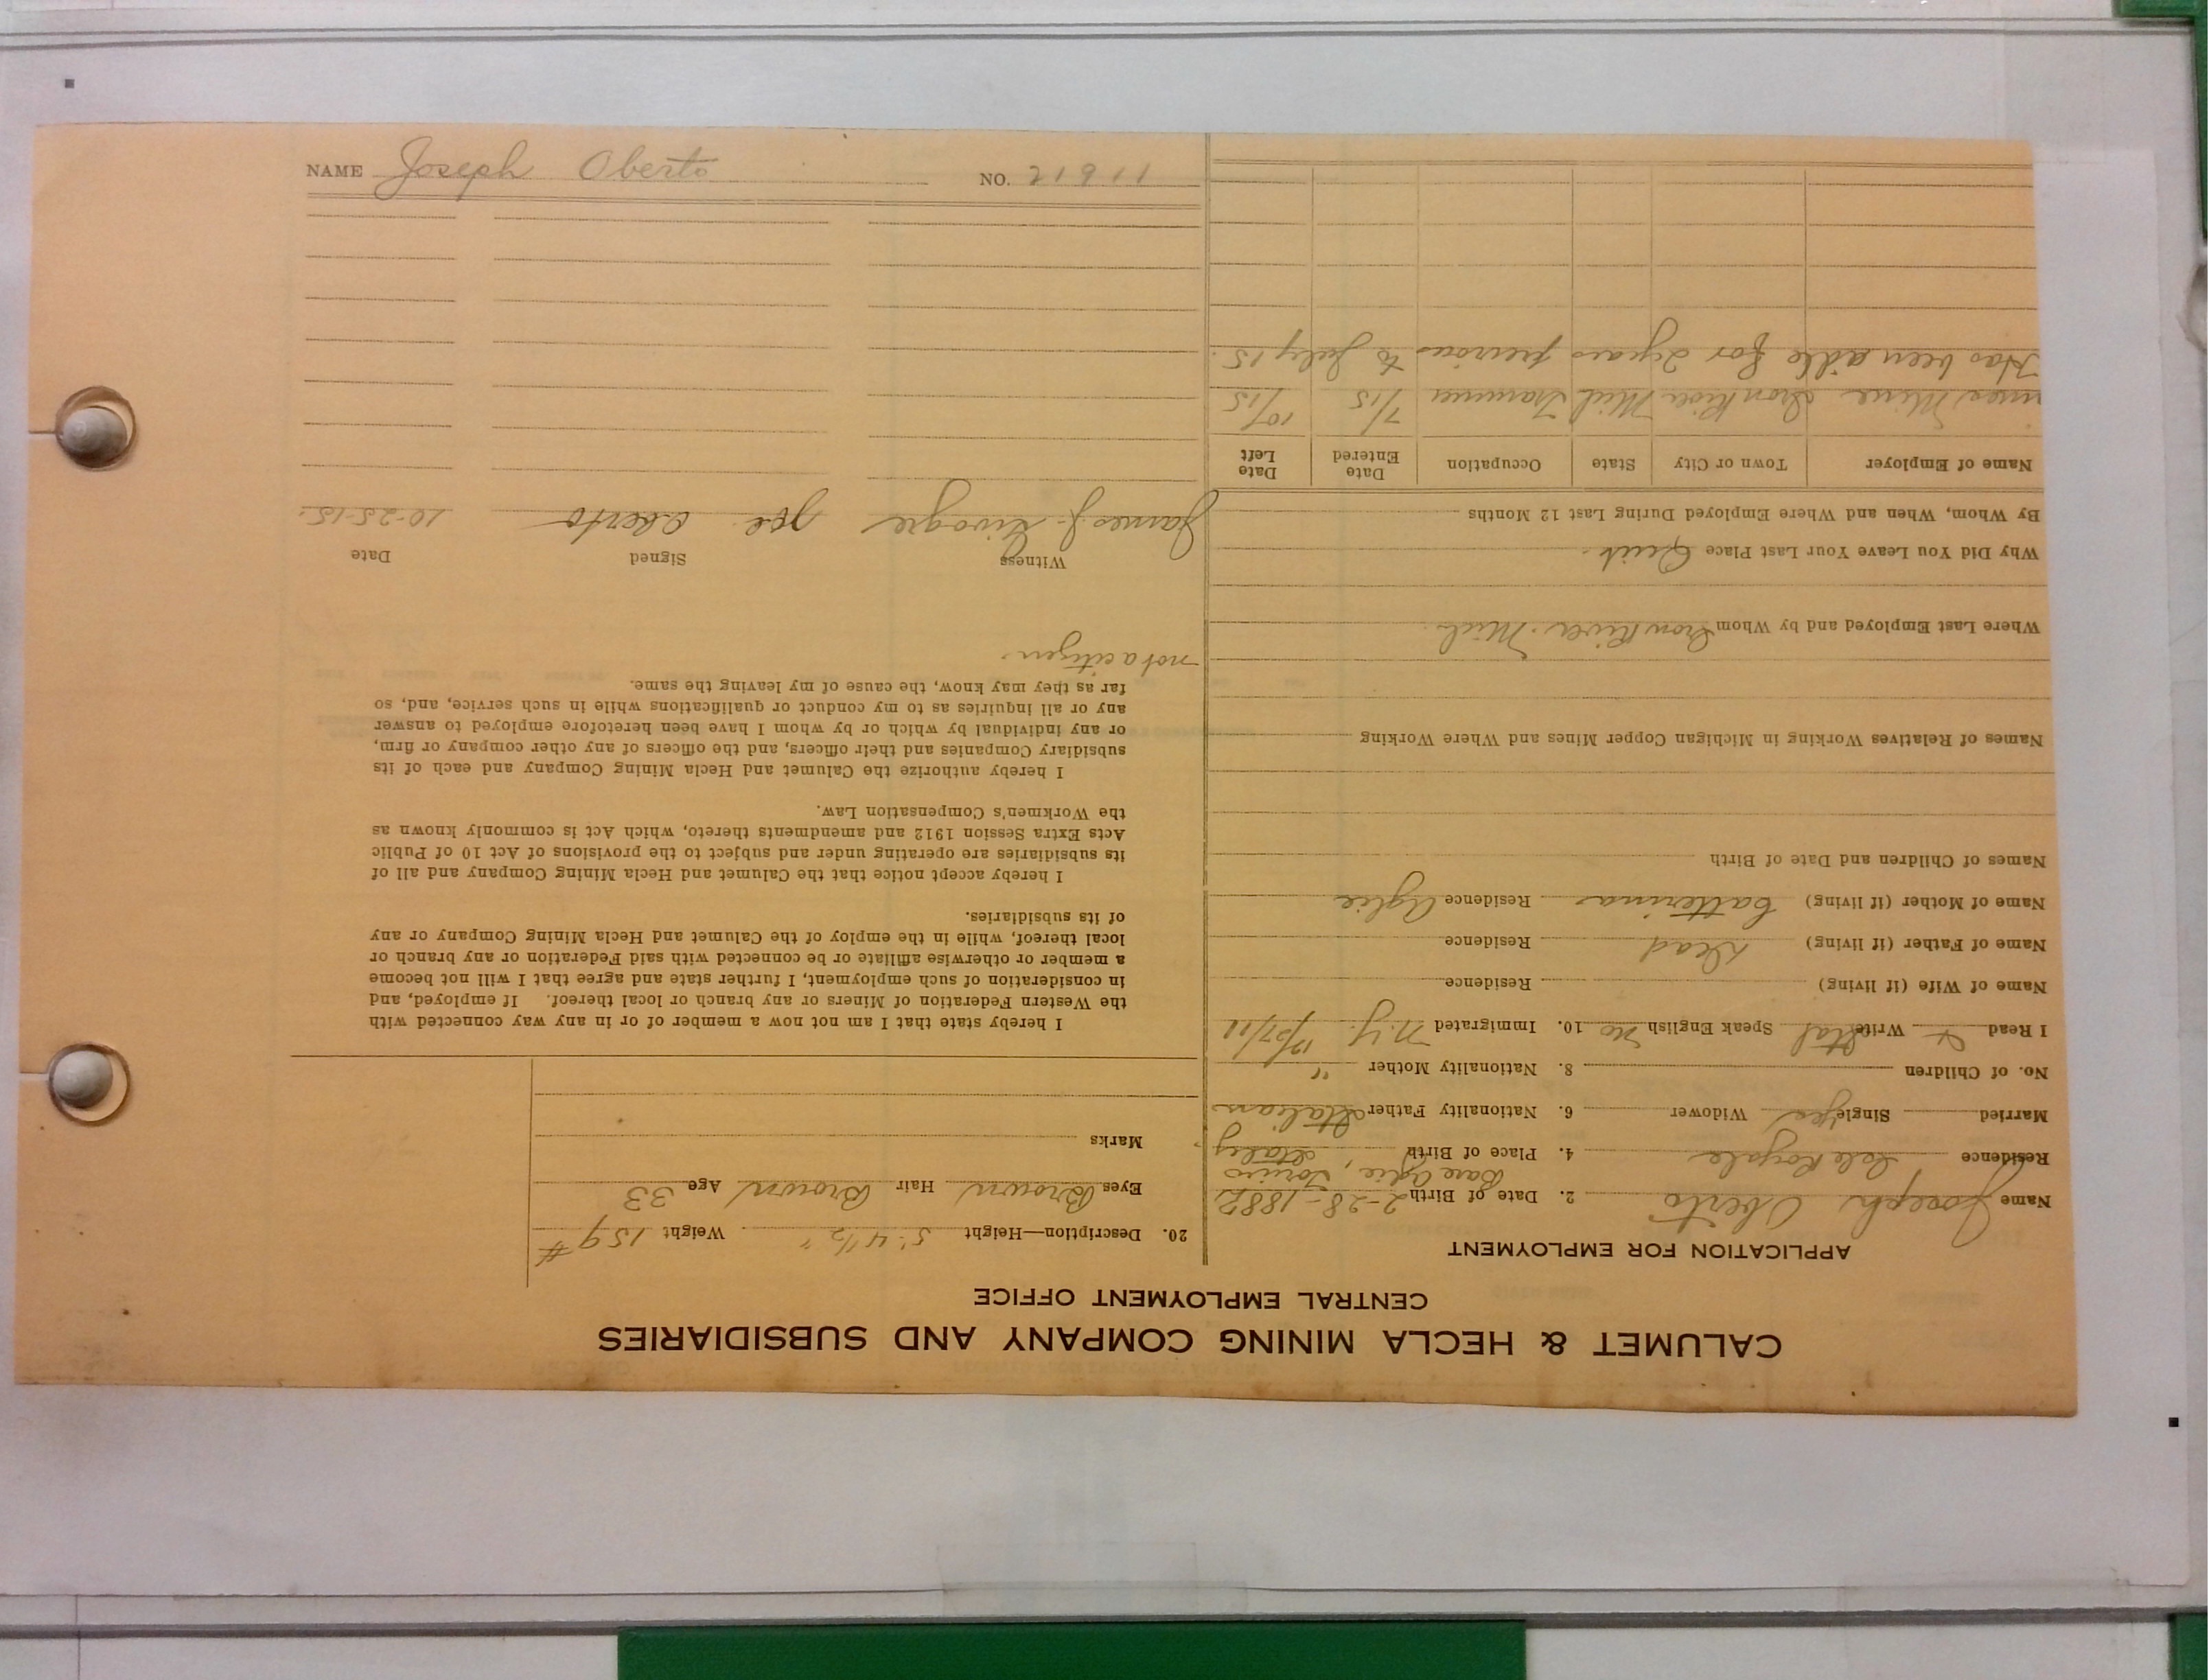 CALUMET & HECLA MINING COMPANY AND SUBSIDIARIES
CENTRAL EMPLOYMENT OFFICE
APPLICATION FOR EMPLOYMENT
Name Joseph Oberto 2. Date of Birth 2-28-1882
Residence Isle Royale 4. Place of Birth Torino, Italy
Married Single Yes Widower 6. Nationality Father Italian
No. of Children 8. Nationality Mother "
I Read Write Ital Speak English No 10. Immigrated N.Y.
Name of Wife (if living) Residence
Name of Father (if living) Dead Residence
Name of Mother (if living) Catterina Residence Aglie
Names of Children and Date of Birth
Names of Relatives Working in Michigan Copper Mines and Where Working
Where Last Employed and by Whom Iron River Mich
Why Did You Leave Your Last Place Quit.
By Whom, When and Where Employed During Last 12 Months
Name of Employer Town or City State Occupation Date Entered Date Left
Mine Iron River Mich Trammer 7/15 10/15
Has been idle for 2 years previous to July 15.
20. Description—Height 5' 4 1/2" Weight 159 #
Eyes Brown Hair Brown Age 33
Marks
I hereby state that I am not now a member of or in any way connected with
the Western Federation of Miners or any branch or local thereof. If employed, and
in consideration of such employment, I further state and agree that I will not become
a member or otherwise affiliate or be connected with said Federation or any branch or
local thereof, while in the employ of the Calumet and Hecla Mining Company or any
of its subsidiaries.
I hereby accept notice that the Calumet and Hecla Mining Company and all of
its subsidiaries are operating under and subject to the provisions of Act 10 of Public
Acts Extra Session 1912 and amendments thereto, which Act is commonly known as
the Workmen's Compensation Law.
I hereby authorize the Calumet and Hecla Mining Company and each of its
subsidiary Companies and their officers, and the officers of any other company or firm,
or any individual by which or by whom I have been heretofore employed to answer
any or all inquiries as to my conduct or qualifications while in such service, and, so
far as they may know, the cause of my leaving the same.
not a citizen.
Witness Signed Date
James J. Joe Oberto 10-25-15.
NAME Joseph Oberto NO. 21811